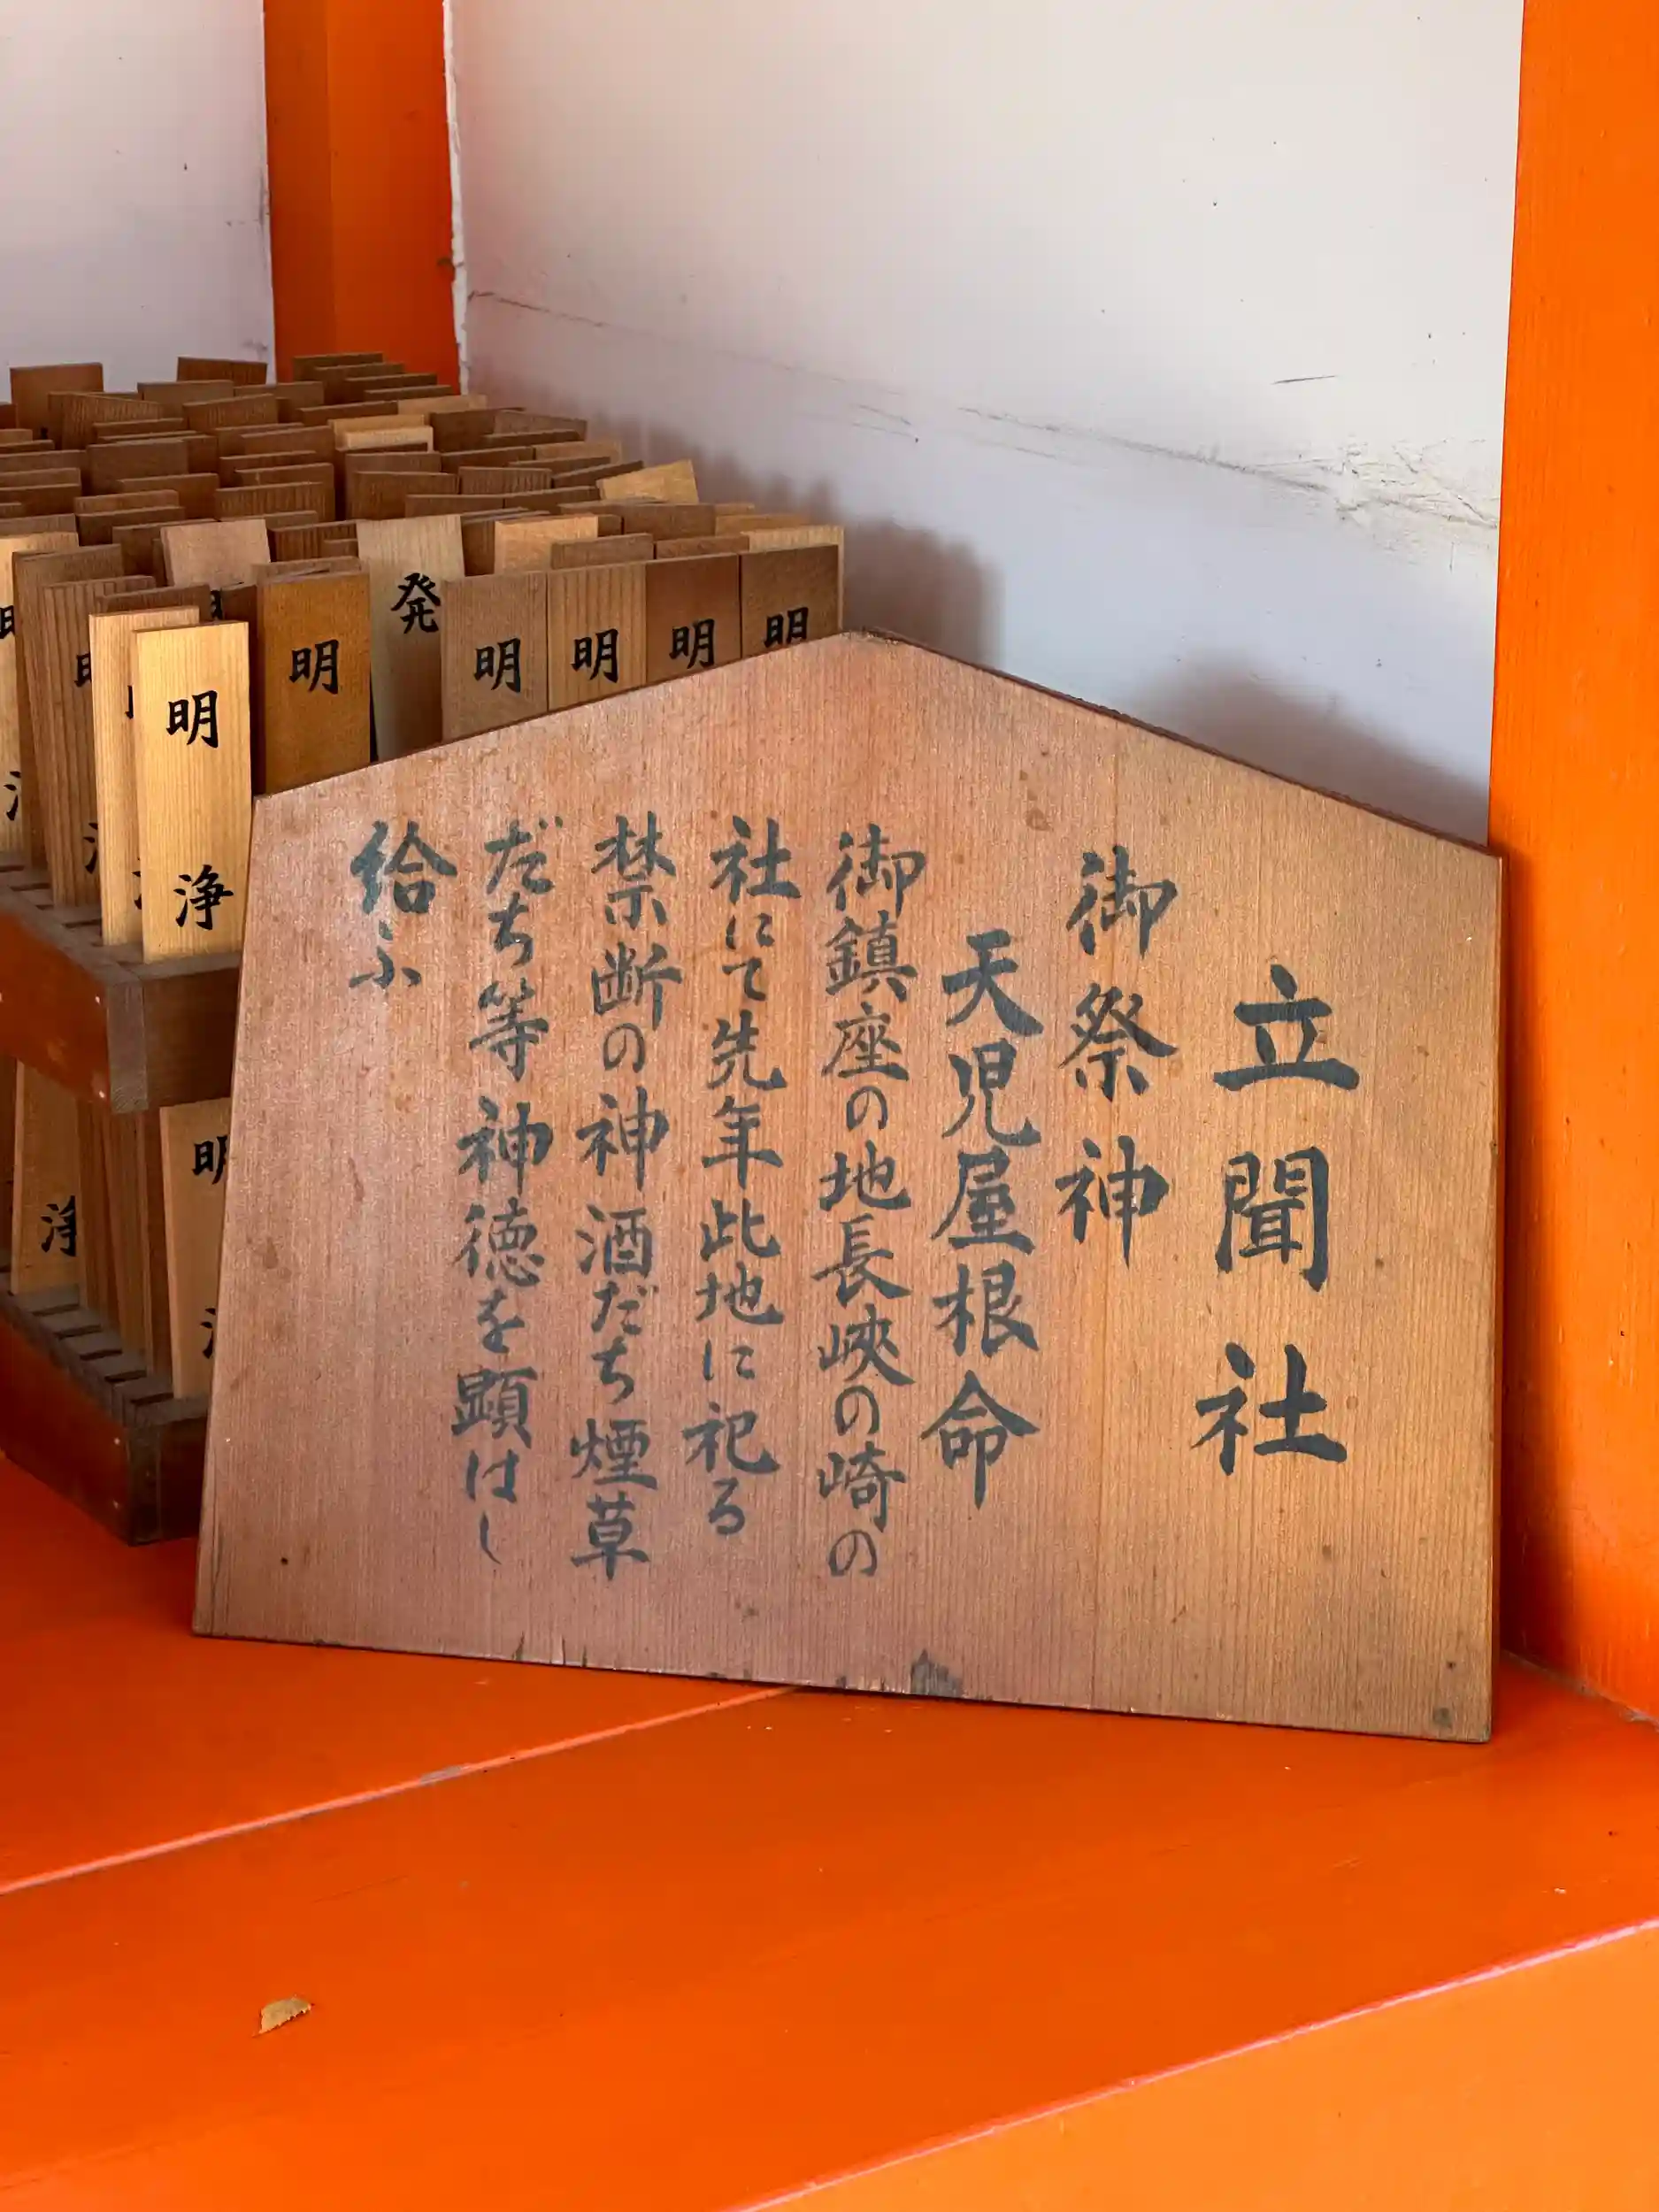 立聞社
御祭神
天児屋根命
御鎮座の地長峡の崎の
社にて先年此地に祀る
禁断の神酒だち煙草
だち等神徳を顕はし
給ふ
明
浄
明
発
明
明
明
明
明
浄